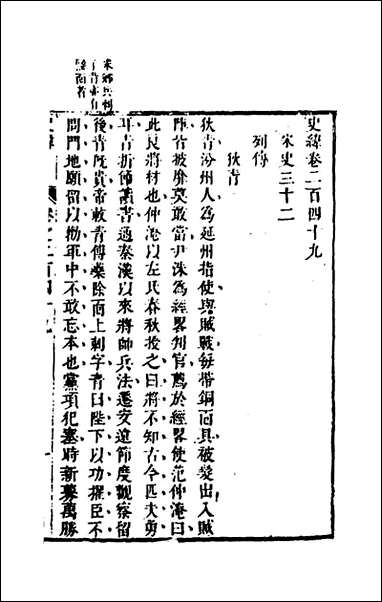 史緯卷二百四十九
宋史三十二
列傳
狄青
狄青汾州人為延州指使與賊戰每帶銅面具被髮出入賊
陣皆披靡莫敢當尹洙為經畧判官薦於經畧使范仲淹曰
此良將材也仲淹以左氏春秋授之曰將不知古今匹夫勇
耳青折節讀書通秦漢以來將帥兵法遷安遠節度觀察留
後青既貴帝敕青傅藥除面上刺字青曰陛下以功擢臣不
問門地願留以勸軍中不敢忘本也黨項犯塞時新募萬勝
宋鄉兵刺